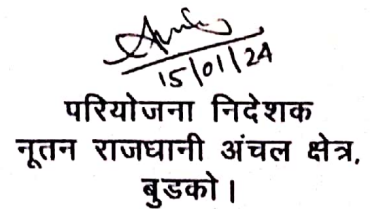 15/01/24
परियोजना निदेशक
नूतन राजधानी अंचल क्षेत्र,
बुडको।